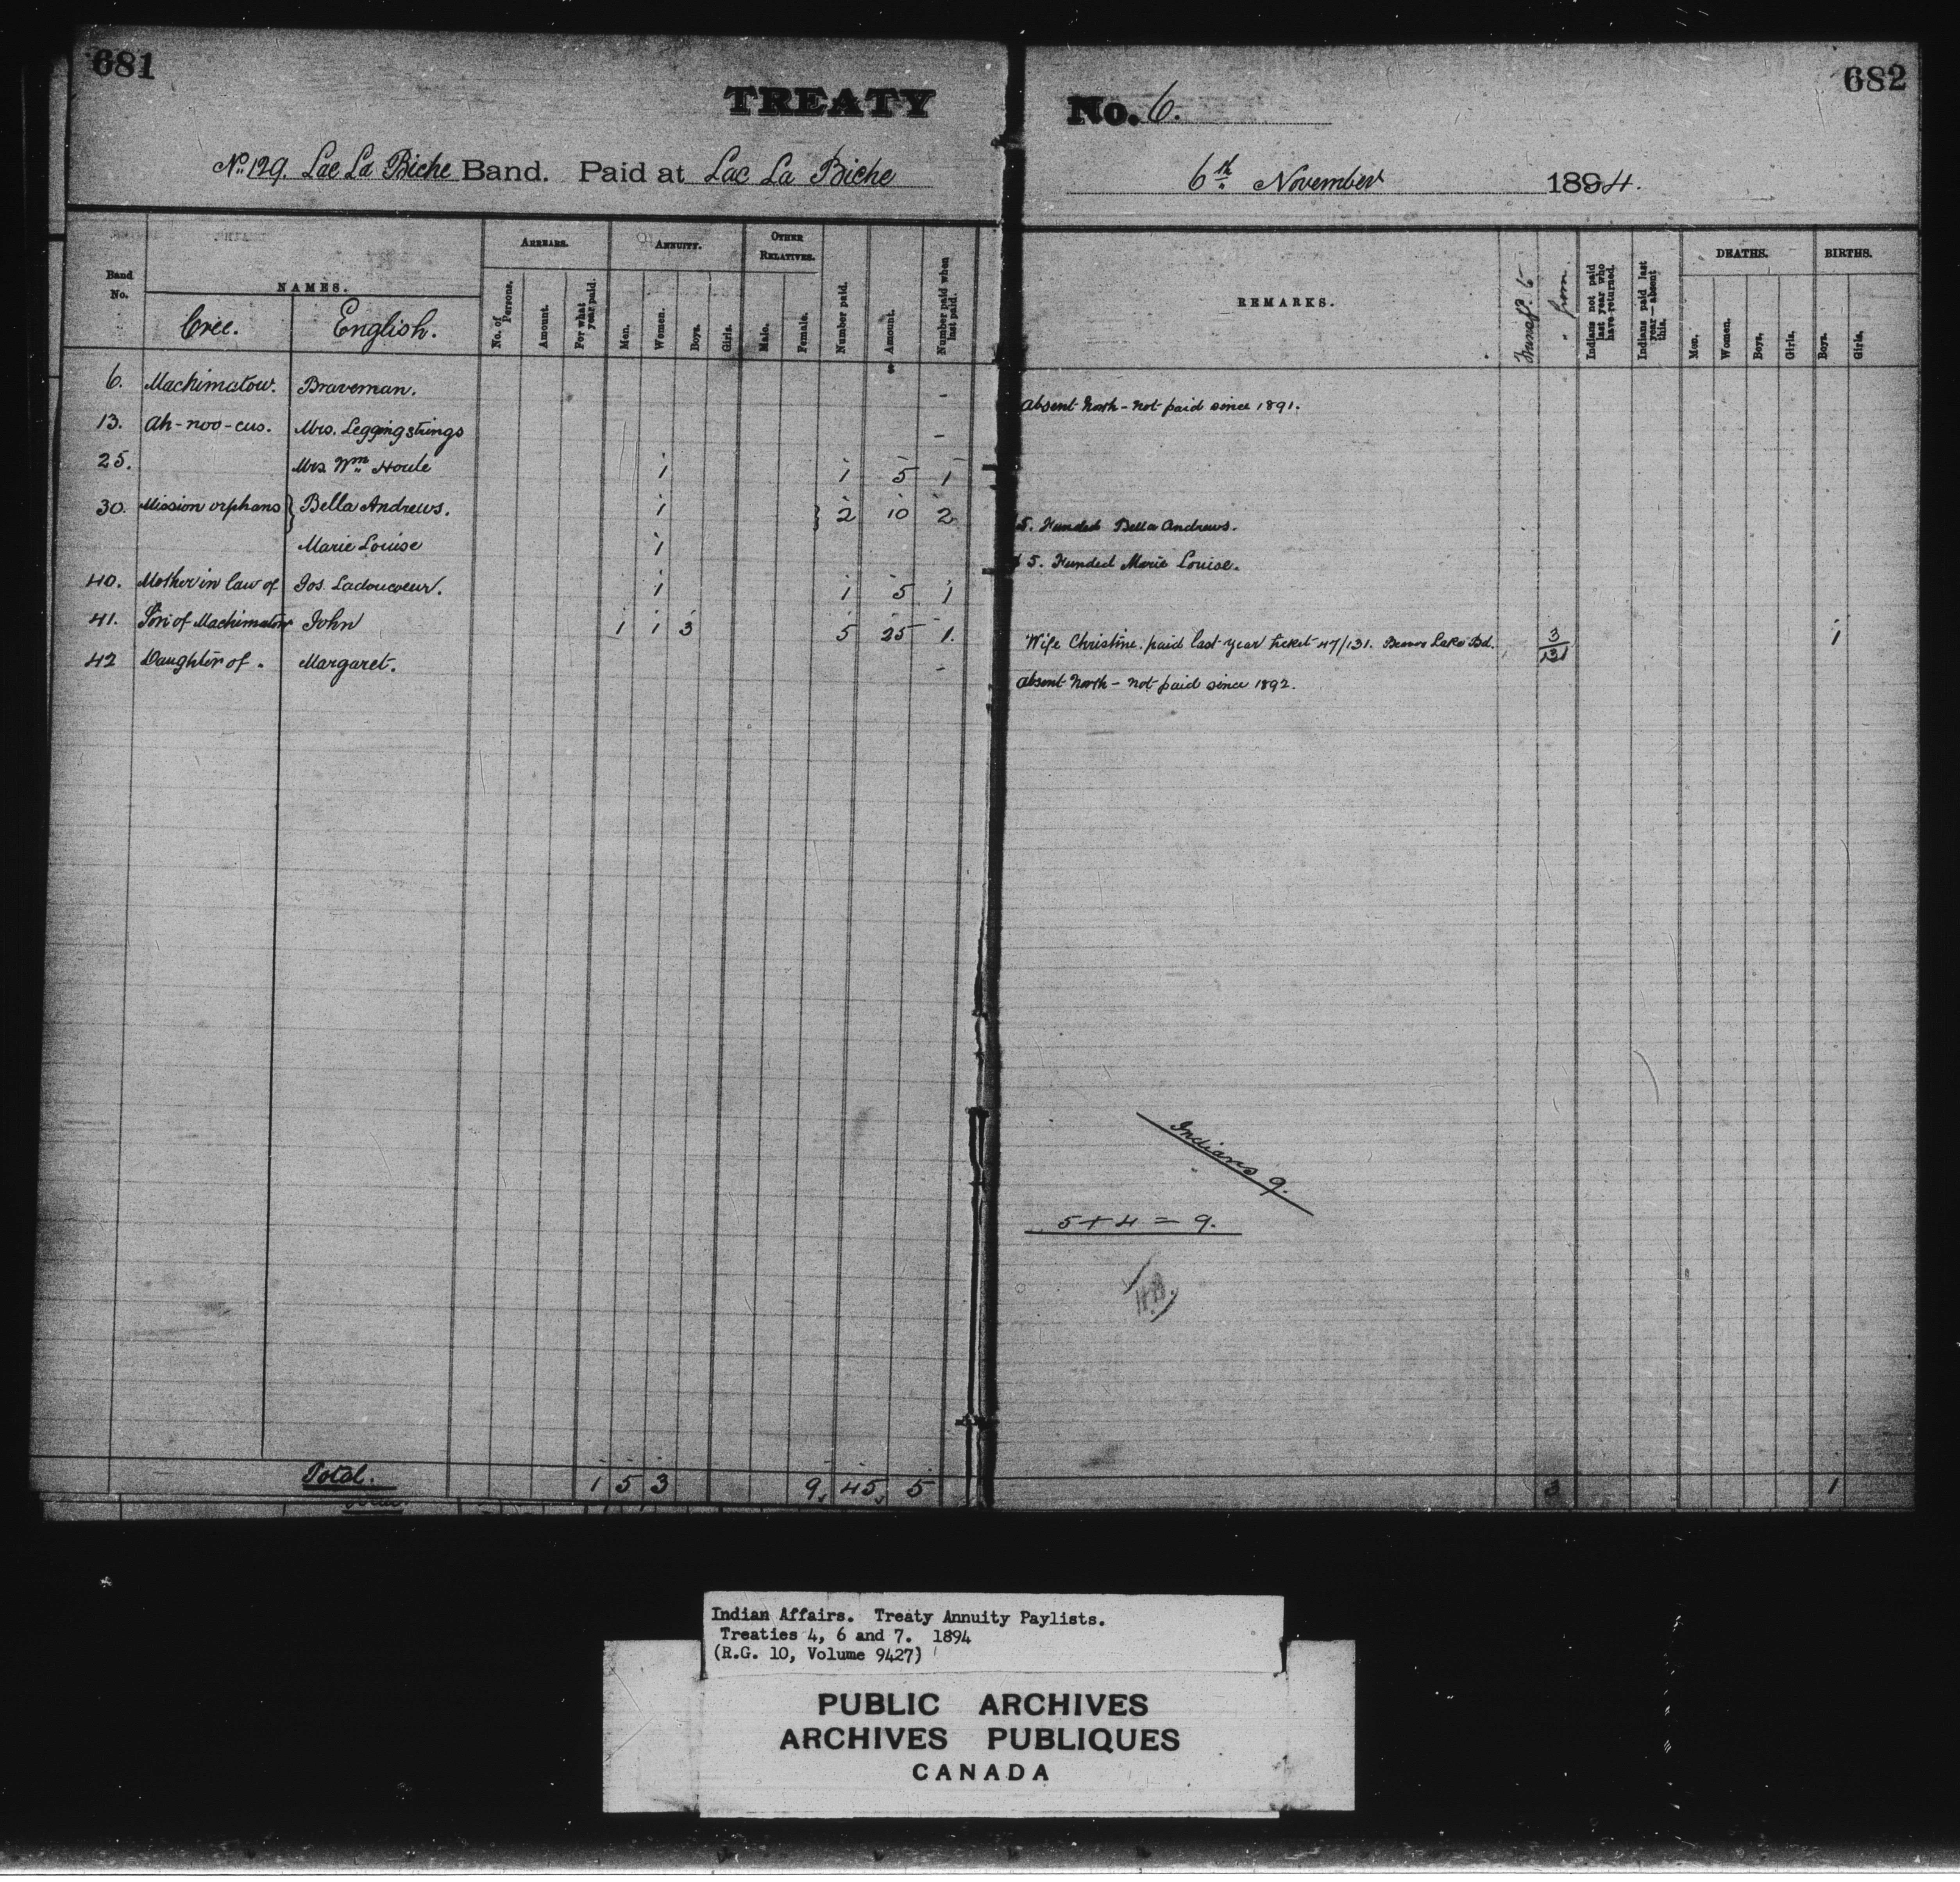 681
682
TREATY No. 6.
No. 129. Lac La Biche Band. Paid at Lac La Biche 6th November 1894.
Band No.
NAMES.
Cree.
English.
ARREARS.
No. of Persons.
Amount.
For what year paid.
ANNUITY.
Men.
Women.
Boys.
Girls.
OTHER RELATIVES.
Male.
Female.
Number paid.
Amount.
Number paid when last paid.
REMARKS.
Transf. to
" from.
Indians not paid last year who have returned.
Indians paid last year—absent this.
DEATHS.
Men.
Women.
Boys.
Girls.
BIRTHS.
Boys.
Girls.
$
6. Machimatow. Braveman. - Absent North - not paid since 1891.
13. Ah-noo-cus. Mrs. Leggingstrings -
25. Mrs. Wm Houle 1 1 5 1
30. Mission orphans } Bella Andrews. 1 } 2 10 2 $5. Funded Bella Andrews.
Marie Louise 1 $5. Funded Marie Louise.
40. Mother in law of Jos. Ladoucoeur. 1 1 5 1
41. Son of Machimatow John 1 1 3 5 25 1. Wife Christine. paid last year ticket 47/131. Beaver Lake Bd. 3/131 1
42 Daughter of " Margaret. - Absent North - not paid since 1892.
Indians 9.
5 + 4 = 9.
Total. 1 5 3 9 45 5 3 1
Indian Affairs. Treaty Annuity Paylists.
Treaties 4, 6 and 7. 1894
(R.G. 10, Volume 9427)
PUBLIC ARCHIVES
ARCHIVES PUBLIQUES
CANADA